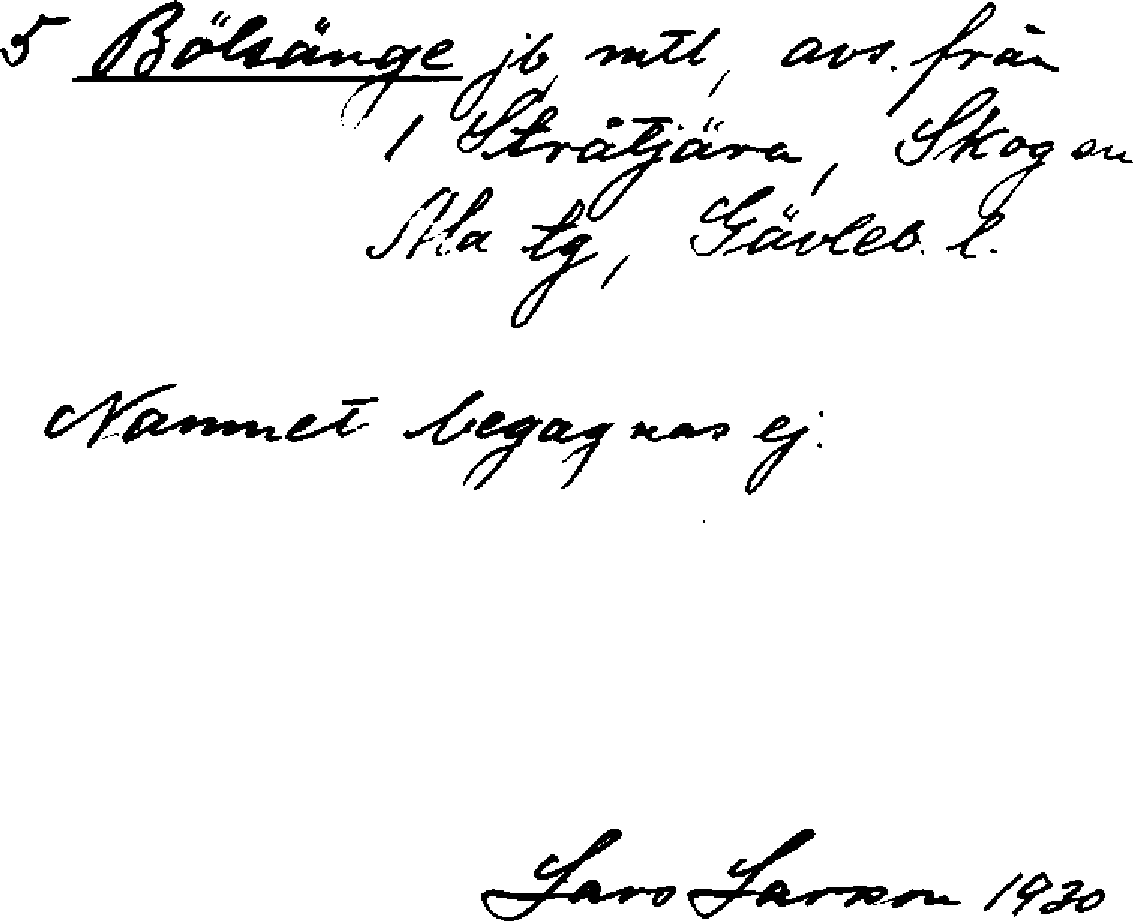 5 Bölsänge jb, mtl, avs. från
1 Stråtjära, Skog sn
Ala tg, Gävleb. l.
Namnet begagnas ej.
Lars Larsson 1930